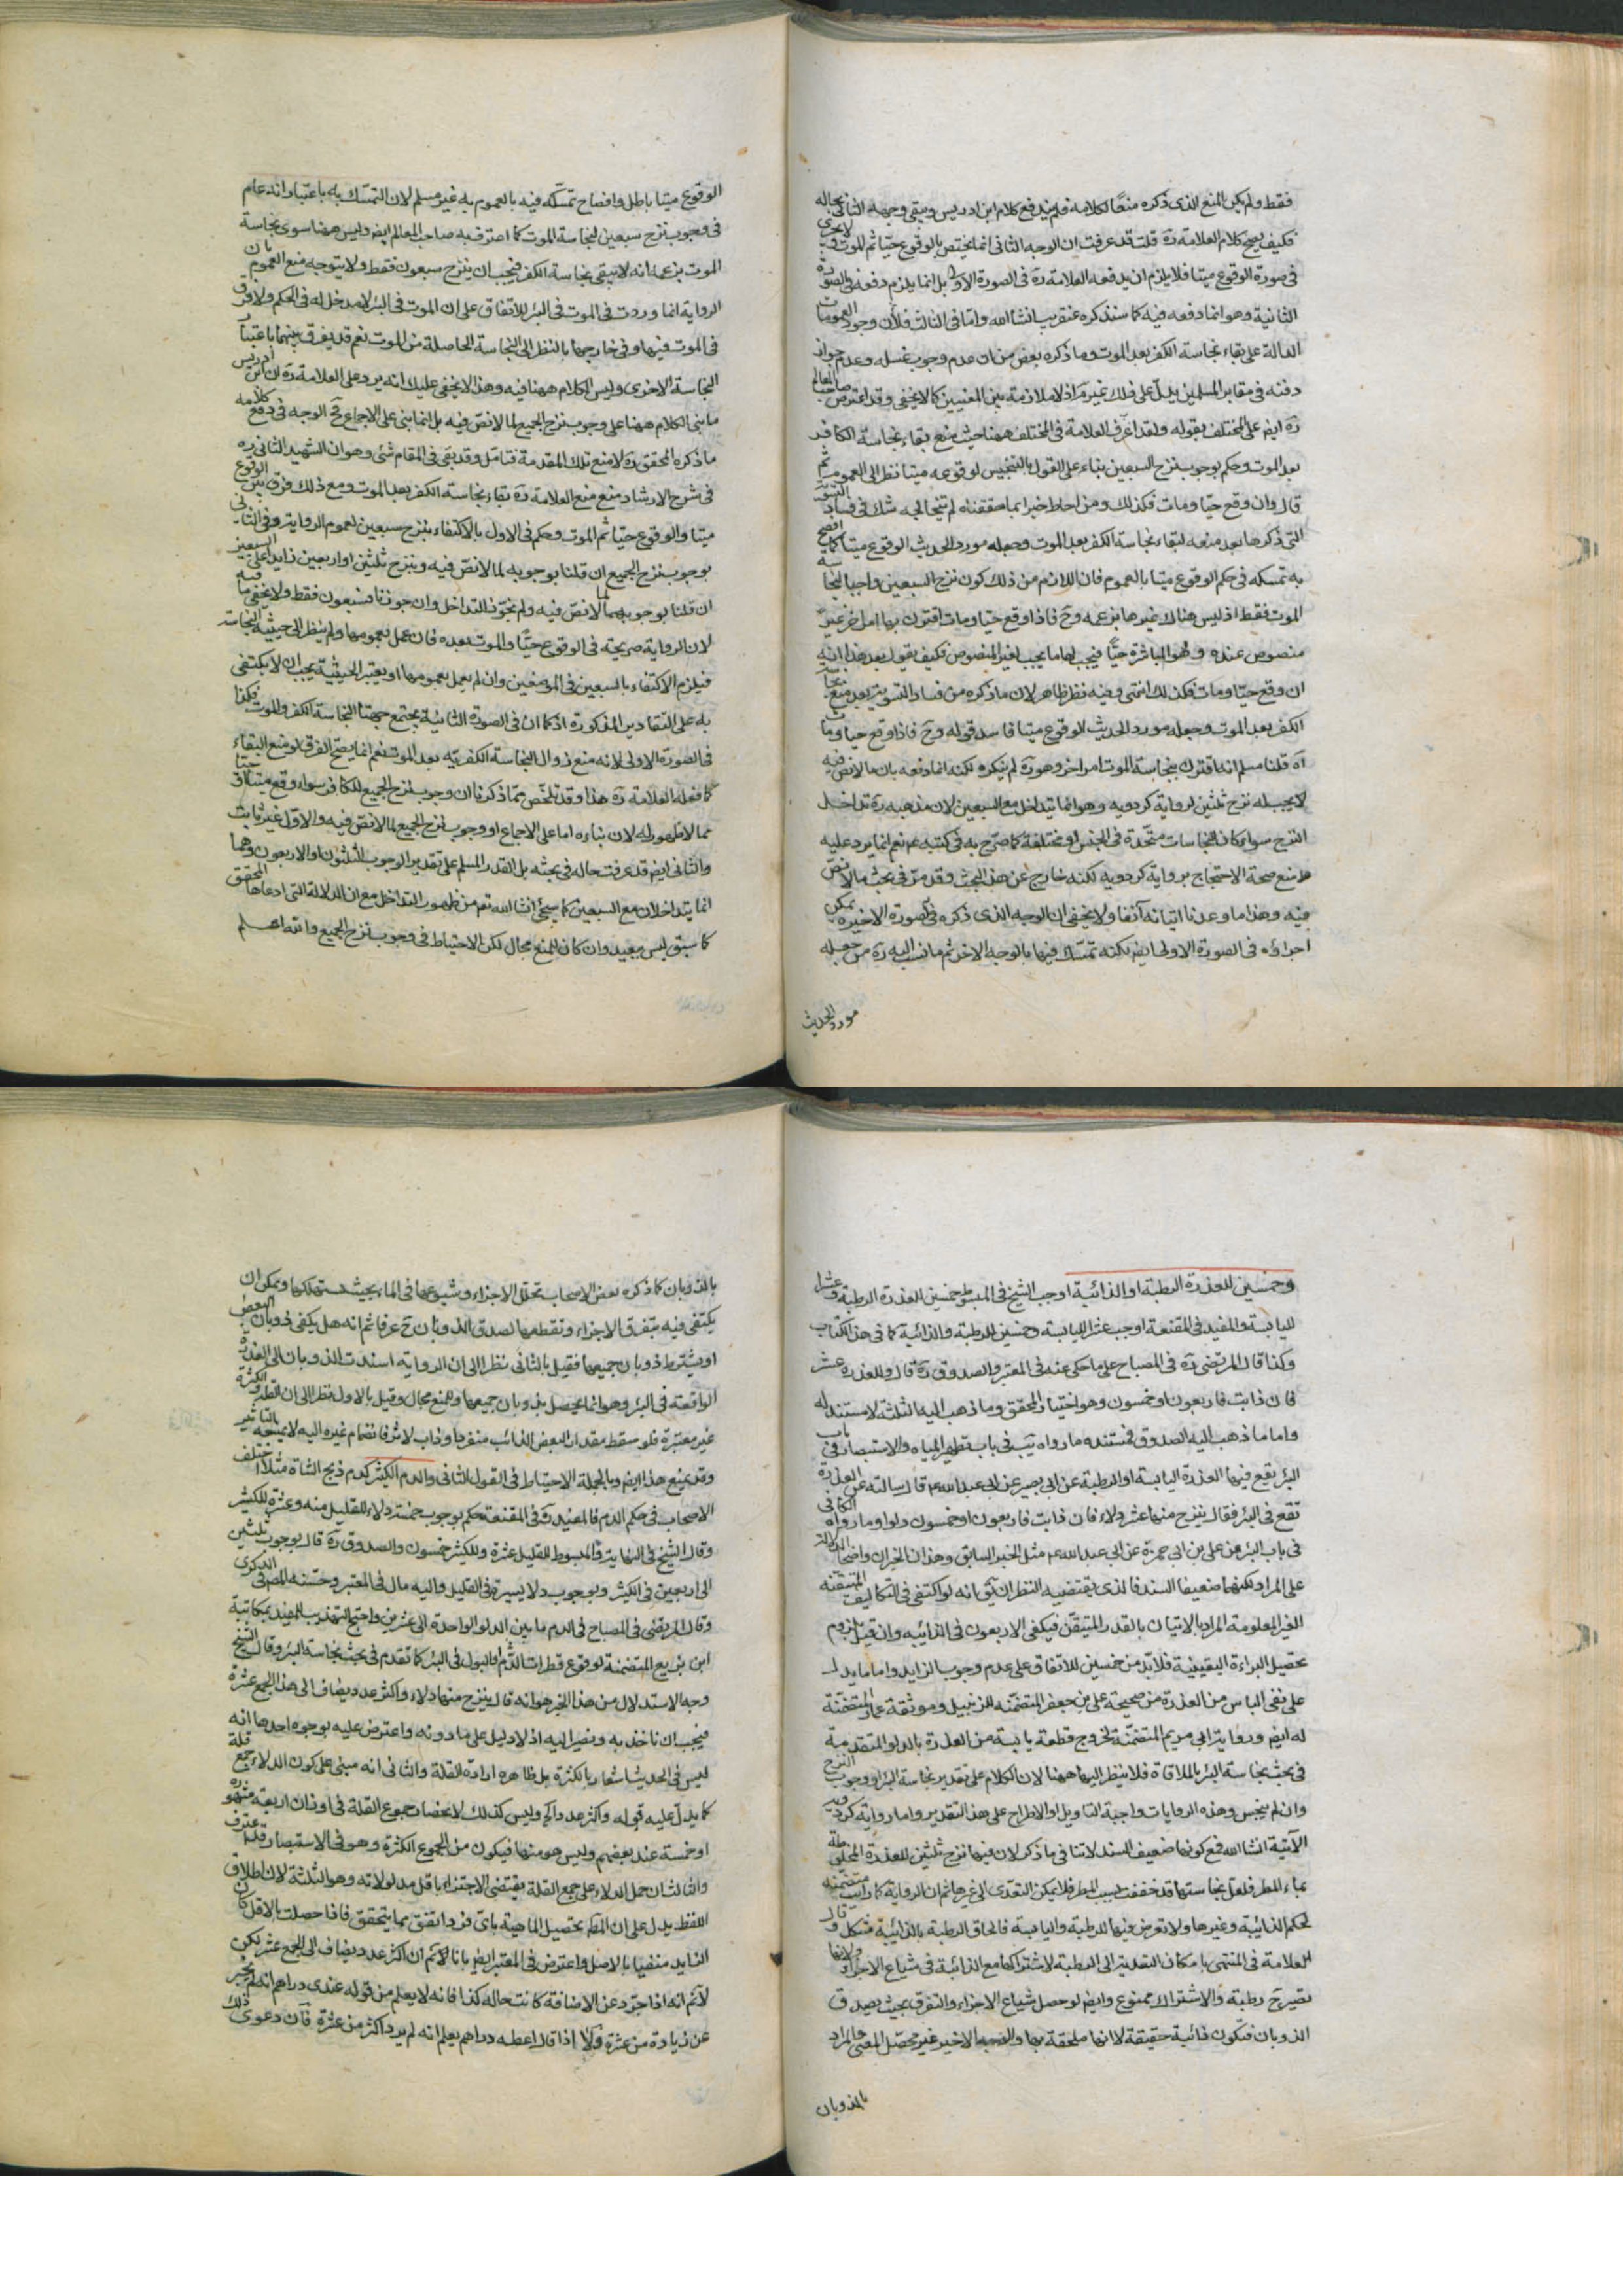 فقط ولم يكن المنع الذى ذكره منعًا لكلامه فلم يندفع كلام ابن ادريس ويبقى وجهه الثانى بحاله
فكيف يصح كلام العلامة ره قلت قد عرفت ان الوجه الثانى انما يختص بالوقوع حيّا ثم الموت ولا يجرى
فى صورة الوقوع ميتا فلا يلزم ان يدفعه العلامة ره فى الصورة الاولى بل انما يلزم دفعه فى الصورة
الثانية وهو انما دفعه فيه كما سنذكره عنقريب انشا الله واما فى الثالث فلأن وجود العمومات
الدالة على بقاء نجاسة الكفر بعد الموت وما ذكره بعض من ان عدم وجوب غسله وعدم جواز
دفنه فى مقابر المسلمين يدلّ على ذلك غير مراد لا ملازمة بين المعنيين كما لا يخفى وقد اعترض صاحب المعالم
ره ايضا على المختلف بقوله ولقد اغرب العلامة فى المختلف ههنا حيث منع بقاء نجاسة الكافر
بعد الموت وحكم بوجوب نزح السبعين بناء على القول بالتنجيس لوقوعه ميتا نظرا الى العموم ثم
قال وان وقع حيّا ومات فكذلك ومن احاط خبرا بما حققناه لم يتخالجه شك فى فساد التسوية
التى ذكرها بعد منعه لبقاء نجاسة الكفر بعد الموت وجعله مورد الحديث الوقوع ميتا كما افصح
به تمسكه فى حكم الوقوع ميتا بالعموم فان اللازم من ذلك كون نزح السبعين واجبا لنجاسة
الموت فقط اذ ليس هناك غيرها بزعمه وح فاذا وقع حيّا ومات اقترن بها امر اخر غير
منصوص عنده وهو المباشرة حيًّا فيجب لها ما يجب لغير المنصوص فكيف يقول بعد هذا انه
ان وقع حيّا ومات فكذلك انتهى وفيه نظر ظاهر لان ما ذكره من فساد التسوية بعد منع نجاسة
الكفر بعد الموت وجعله مورد الحديث الوقوع ميتا فاسد قوله وح فاذا وقع حيا ومات
آه قلنا مسلم انه اقترن بنجاسة الموت امر اخر وهو ره لم ينكره لكنه انما دفعه بان ما لا نص فيه
لا يجب له نزح ثلثين لرواية كردويه وهو انما يتداخل مع السبعين لان مذهبه ره تداخل
النزح سواء كان النجاسات متّحدة فى الجنس او مختلفة كما صرّح به فى كتبه نعم انما يرد عليه
منع صحة الاحتجاج برواية كردويه لكنه خارج عن هذا البحث وقد مرّ فى بحث ما لا نصّ
فيه وهذا ما وعدنا اتيانه آنفا ولا يخفى ان الوجه الذى ذكره فى الصورة الاخيرة يمكن
اجراؤه فى الصورة الاولى ايضا لكنه تمسّك فيها بالوجه الاخر ثم ما نسب اليه ره من جعله
مورد الحديث
الوقوع ميتا باطل وافصاح تمسّكه فيه بالعموم به غير مسلم لان التمسّك به باعتبار انه عام
فى وجوب نزح سبعين لنجاسة الموت كما اعترف به صاحب المعالم ايضا وليس ههنا سوى نجاسة
الموت بزعمه انه لا تبقى نجاسة الكفر فيجب ان ينزح سبعون فقط ولا يتوجه منع العموم بان
الرواية انما وردت فى الموت فى البئر للاتفاق على ان الموت فى البئر لا مدخل له فى الحكم ولا فرق
فى الموت فيها وفى خارجها بالنظر الى النجاسة الحاصلة من الموت نعم قد يفرق بينهما باعتبار
النجاسة الاخرى وليس الكلام ههنا فيه وهذا لا يخفى عليك انه يرد على العلامة ره ان ابن ادريس
ما بنى الكلام ههنا على وجوب نزح الجميع لما لا نصّ فيه بل انما بنى على الاجماع فح الوجه فى دفع كلامه
ما ذكره المحقق ره لا منع تلك المقدمة فتامل وقد بقى فى المقام شئ وهو ان الشهيد الثانى ره
فى شرح الارشاد منع منع العلامة ره بقاء نجاسة الكفر بعد الموت ومع ذلك فرق بين الوقوع
ميتا والوقوع حيّا ثم الموت وحكم فى الاول بالاكتفاء بنزح سبعين لعموم الرواية وفى الثانى
بوجوب نزح الجميع ان قلنا بوجوبه لما لا نصّ فيه وبنزح ثلثين او اربعين زايدا على السبعين
ان قلنا بوجوبهما لما لا نصّ فيه ولم نجوّز التداخل وان جوزنا فسبعون فقط ولا يخفى ما فيه
لان الرواية صريحة فى الوقوع حيًّا والموت بعده فان عمل بعمومها ولم ينظر الى حيثية النجاسة
فيلزم الاكتفاء بالسبعين فى الموضعين وان لم يعمل بعمومها او يعتبر الحيثية يجب ان لا يكتفى
به على التقادير المذكورة اذ كما ان فى الصورة الثانية يجتمع جهتا النجاسة الكفر والموت فكذا
فى الصورة الاولى لانه منع زوال النجاسة الكفرية بعد الموت نعم انما يصح الفرق لو منع البقاء
كما فعله العلامة ره هذا وقد تلخّص ممّا ذكرنا ان وجوب نزح الجميع للكافر سواء وقع ميتا او حيّا
مما لا ظهور له لان بناءه اما على الاجماع او وجوب نزح الجميع لما لا نصّ فيه والاوّل غير ثابت
والثانى ايضا قد عرفت حاله فى بحثه بل القدر المسلم على تقدير الوجوب الثلثون او الاربعون وهما
انما يتداخلان مع السبعين كما سيجئ انشا الله تعم من ظهور التداخل مع ان الدلالة التى ادعاها المحقق
كما سبق ليس ببعيد وان كان للمنع مجال لكن الاحتياط فى وجوب نزح الجميع والله اعلم
وخمسين للعذرة الرطبة او الذائبة اوجب الشيخ فى المبسوط خمسين للعذرة الرطبة وعشرا
لليابسة والمفيد فى المقنعة اوجب عشرا لليابسة وخمسين للرطبة والذائبة كما فى هذا الكتاب
وكذا قال المرتضى ره فى المصباح على ما حكى عنه فى المعتبر والصدوق ره قال وللعذرة عشر
فان ذابت فاربعون او خمسون وهو اختيار المحقق وما ذهب اليه الثلثة لا مستند له
واما ما ذهب اليه الصدوق فمستنده ما رواه يب فى باب تطهير المياه والاستبصار فى باب
البئر يقع فيها العذرة اليابسة او الرطبة عن ابى بصير عن ابى عبد الله ع قال سالته عن العذرة
تقع فى البئر فقال ينزح منها عشر دلاء فان ذابت فاربعون او خمسون دلوا وما رواه الكافى
فى باب البئر عن على بن ابى حمزة عن ابى عبد الله ع مثل الخبر السابق وهذان الخبران واضحا الدلالة
على المراد لكنهما ضعيفا السند فالذى يقتضيه النظر ان يقّ انه لو اكتفى فى التكاليف المتيقنة
الغير المعلومة المراد بالاتيان بالقدر المتيقّن فيكفى الاربعون فى الذائبة وان قيل بلزوم
تحصيل البراءة اليقينية فلابدّ من خمسين للاتفاق على عدم وجوب الزايد واما ما يدل
على نفى الباس من العذرة من صحيحة على بن جعفر المتضمّنة للزنبيل وموثقة عمار المتضمّنة
له ايضا ورواية ابى مريم المتضمّنة لخروج قطعة يابسة من العذرة بالدلو المتقدمة
فى بحث نجاسة البئر بالملاقاة فلا ينظر اليها ههنا لان الكلام على تقدير نجاسة البئر او وجوب النزح
وان لم ينجس وهذه الروايات واجبة التاويل او الاطراح على هذا التقدير واما رواية كردويه
الآتية انشا الله فمع كونها ضعيف السند لا تنافى ما ذكر لان فيها نزح ثلثين للعذرة المخلوطة
بماء المطر فلعل نجاستها قد خففت بسبب المطر فلا يمكن التعدّى الى غيرها ثم ان الرواية كما رايت متضمّنة
لحكم الذائبة وغيرها ولا تعرض فيها للرطبة واليابسة فالحاق الرطبة بالذائبة مشكل وقال
العلامة فى المنتهى بامكان التعدية الى الرطبة لاشتراكها مع الذائبة فى شياع الاجزاء ولانها
تصير ح رطبة والاشتراك ممنوع وايضا لو حصل شياع الاجزاء والتفرق بحيث يصدق
الذوبان فتكون ذائبة حقيقة لا انها ملحقة بها والوجه الاخير غير محصّل المعنى والمراد
بالذوبان
بالذوبان كما ذكره بعض الاصحاب تحلّل الاجزاء وشيوعها فى الماء بحيث يستهلكها ويمكن ان
يكتفى فيه بتفرق الاجزاء وتقطعها لصدق الذوبان ح عرفا ثم انه هل يكفى ذوبان البعض
او يشترط ذوبان جميعها فقيل بالثانى نظرا الى ان الرواية اسندت الذوبان الى العذرة
الواقعة فى البئر وهو انما يحصل بذوبان جميعها وللمنع مجال وقيل بالاول نظرا الى ان القلة والكثرة
غير معتبرة فلو سقط مقدار البعض الذائب منفردا وذاب لاثر فانضمام غيره اليه لا يمنعه التاثير
وقد يمنع هذا ايضا وبالجملة الاحتياط فى القول الثانى والدم الكثير كدم ذبح الشاة مثلا اختلف
الاصحاب فى حكم الدم فالمفيد ره فى المقنعة حكم بوجوب خمسة دلاء للقليل منه وعشرة للكثير
وقال الشيخ فى النهاية والمبسوط للقليل عشرة وللكثير خمسون والصدوق ره قال بوجوب ثلثين
الى اربعين فى الكثير وبوجوب دلاء يسيرة فى القليل واليه مال فى المعتبر وحسّنه المصر فى الذكرى
وقال المرتضى فى المصباح فى الدم ما بين الدلو الواحدة الى عشرين واحتج التهذيب للمفيد بمكاتبة
ابن بزيع المتضمنة لوقوع قطرات الدّم والبول فى البئر كما تقدم فى بحث نجاسة البئر وقال الشيخ
وجه الاستدلال من هذا الخبر هو انه قال ينزح منها دلاء واكثر عدد يضاف الى هذا الجمع عشرة
فيجب ان ناخذ به ونصير اليه اذ لا دليل على ما دونه واعترض عليه بوجوه احدها انه
ليس فى الحديث اشعار بالكثرة بل ظاهره ارادة القلة والثانى انه مبنى على كون الدلاء جمع قلة
كما يدلّ عليه قوله واكثر عدد آه وليس كذلك لانحصار جموع القلة فى اوزان اربعة مشهورة
او خمسة عند بعضهم وليس هو منها فيكون من الجموع الكثرة وهو فى الاستبصار قد اعترف
والثالث ان حمل الدلاء على جمع القلة يقتضى الاجتزاء باقل مدلولاته وهو الثلثة لان اطلاق
اللفظ يدل على ان المطّ تحصيل الماهية باىّ فرد اتفق مما يتحقق فاذا حصلت بالاقل كان
الزايد منفيا بالاصل واعترض فى المعتبر ايضا بانا لا نّم ان اكثر عدد يضاف الى الجمع عشر لكن
لا نّم انه اذا جرّد عن الاضافة كانت حاله كذا فانه لا يعلم من قوله عندى دراهم انه لم يخبر
عن زيادة من عشرة ولا اذا قال اعطه دراهم يعلم انه لم يرد اكثر من عشرة فان دعوى ذلك